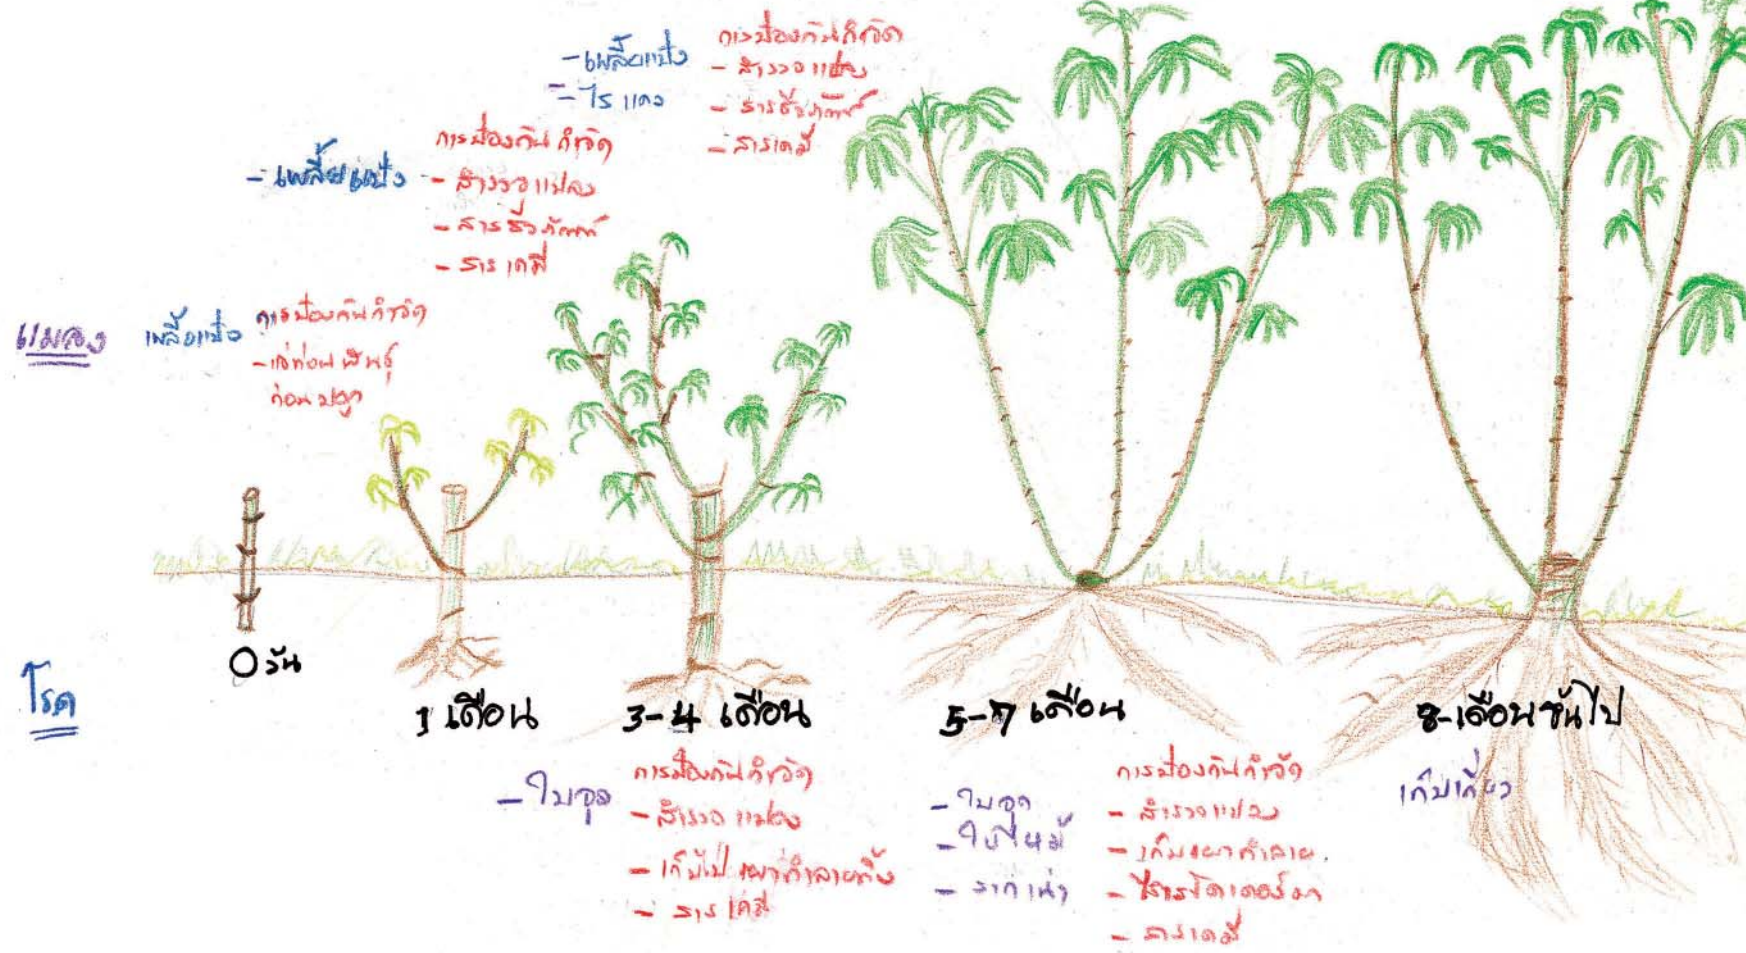 - เพลี้ยแป้ง
- ไรแดง
การป้องกันกำจัด
- สำรวจแปลง
- สารชีวภัณฑ์
- สารเคมี
- เพลี้ยแป้ง
การป้องกันกำจัด
- สำรวจแปลง
- สารชีวภัณฑ์
- สารเคมี
แมลง
เพลี้ยแป้ง
การป้องกันกำจัด
- แช่ท่อนพันธุ์
ก่อนปลูก
0 วัน
1 เดือน
3-4 เดือน
5-7 เดือน
8-เดือนขึ้นไป
โรค
- ใบจุด
การป้องกันกำจัด
- สำรวจแปลง
- เก็บไปเผาทำลายทิ้ง
- สารเคมี
- ใบจุด
- ใบไหม้
- รากเน่า
การป้องกันกำจัด
- สำรวจแปลง
- เก็บเผาทำลาย
- ไตรโคเดอร์มา
- สารเคมี
เก็บเกี่ยว